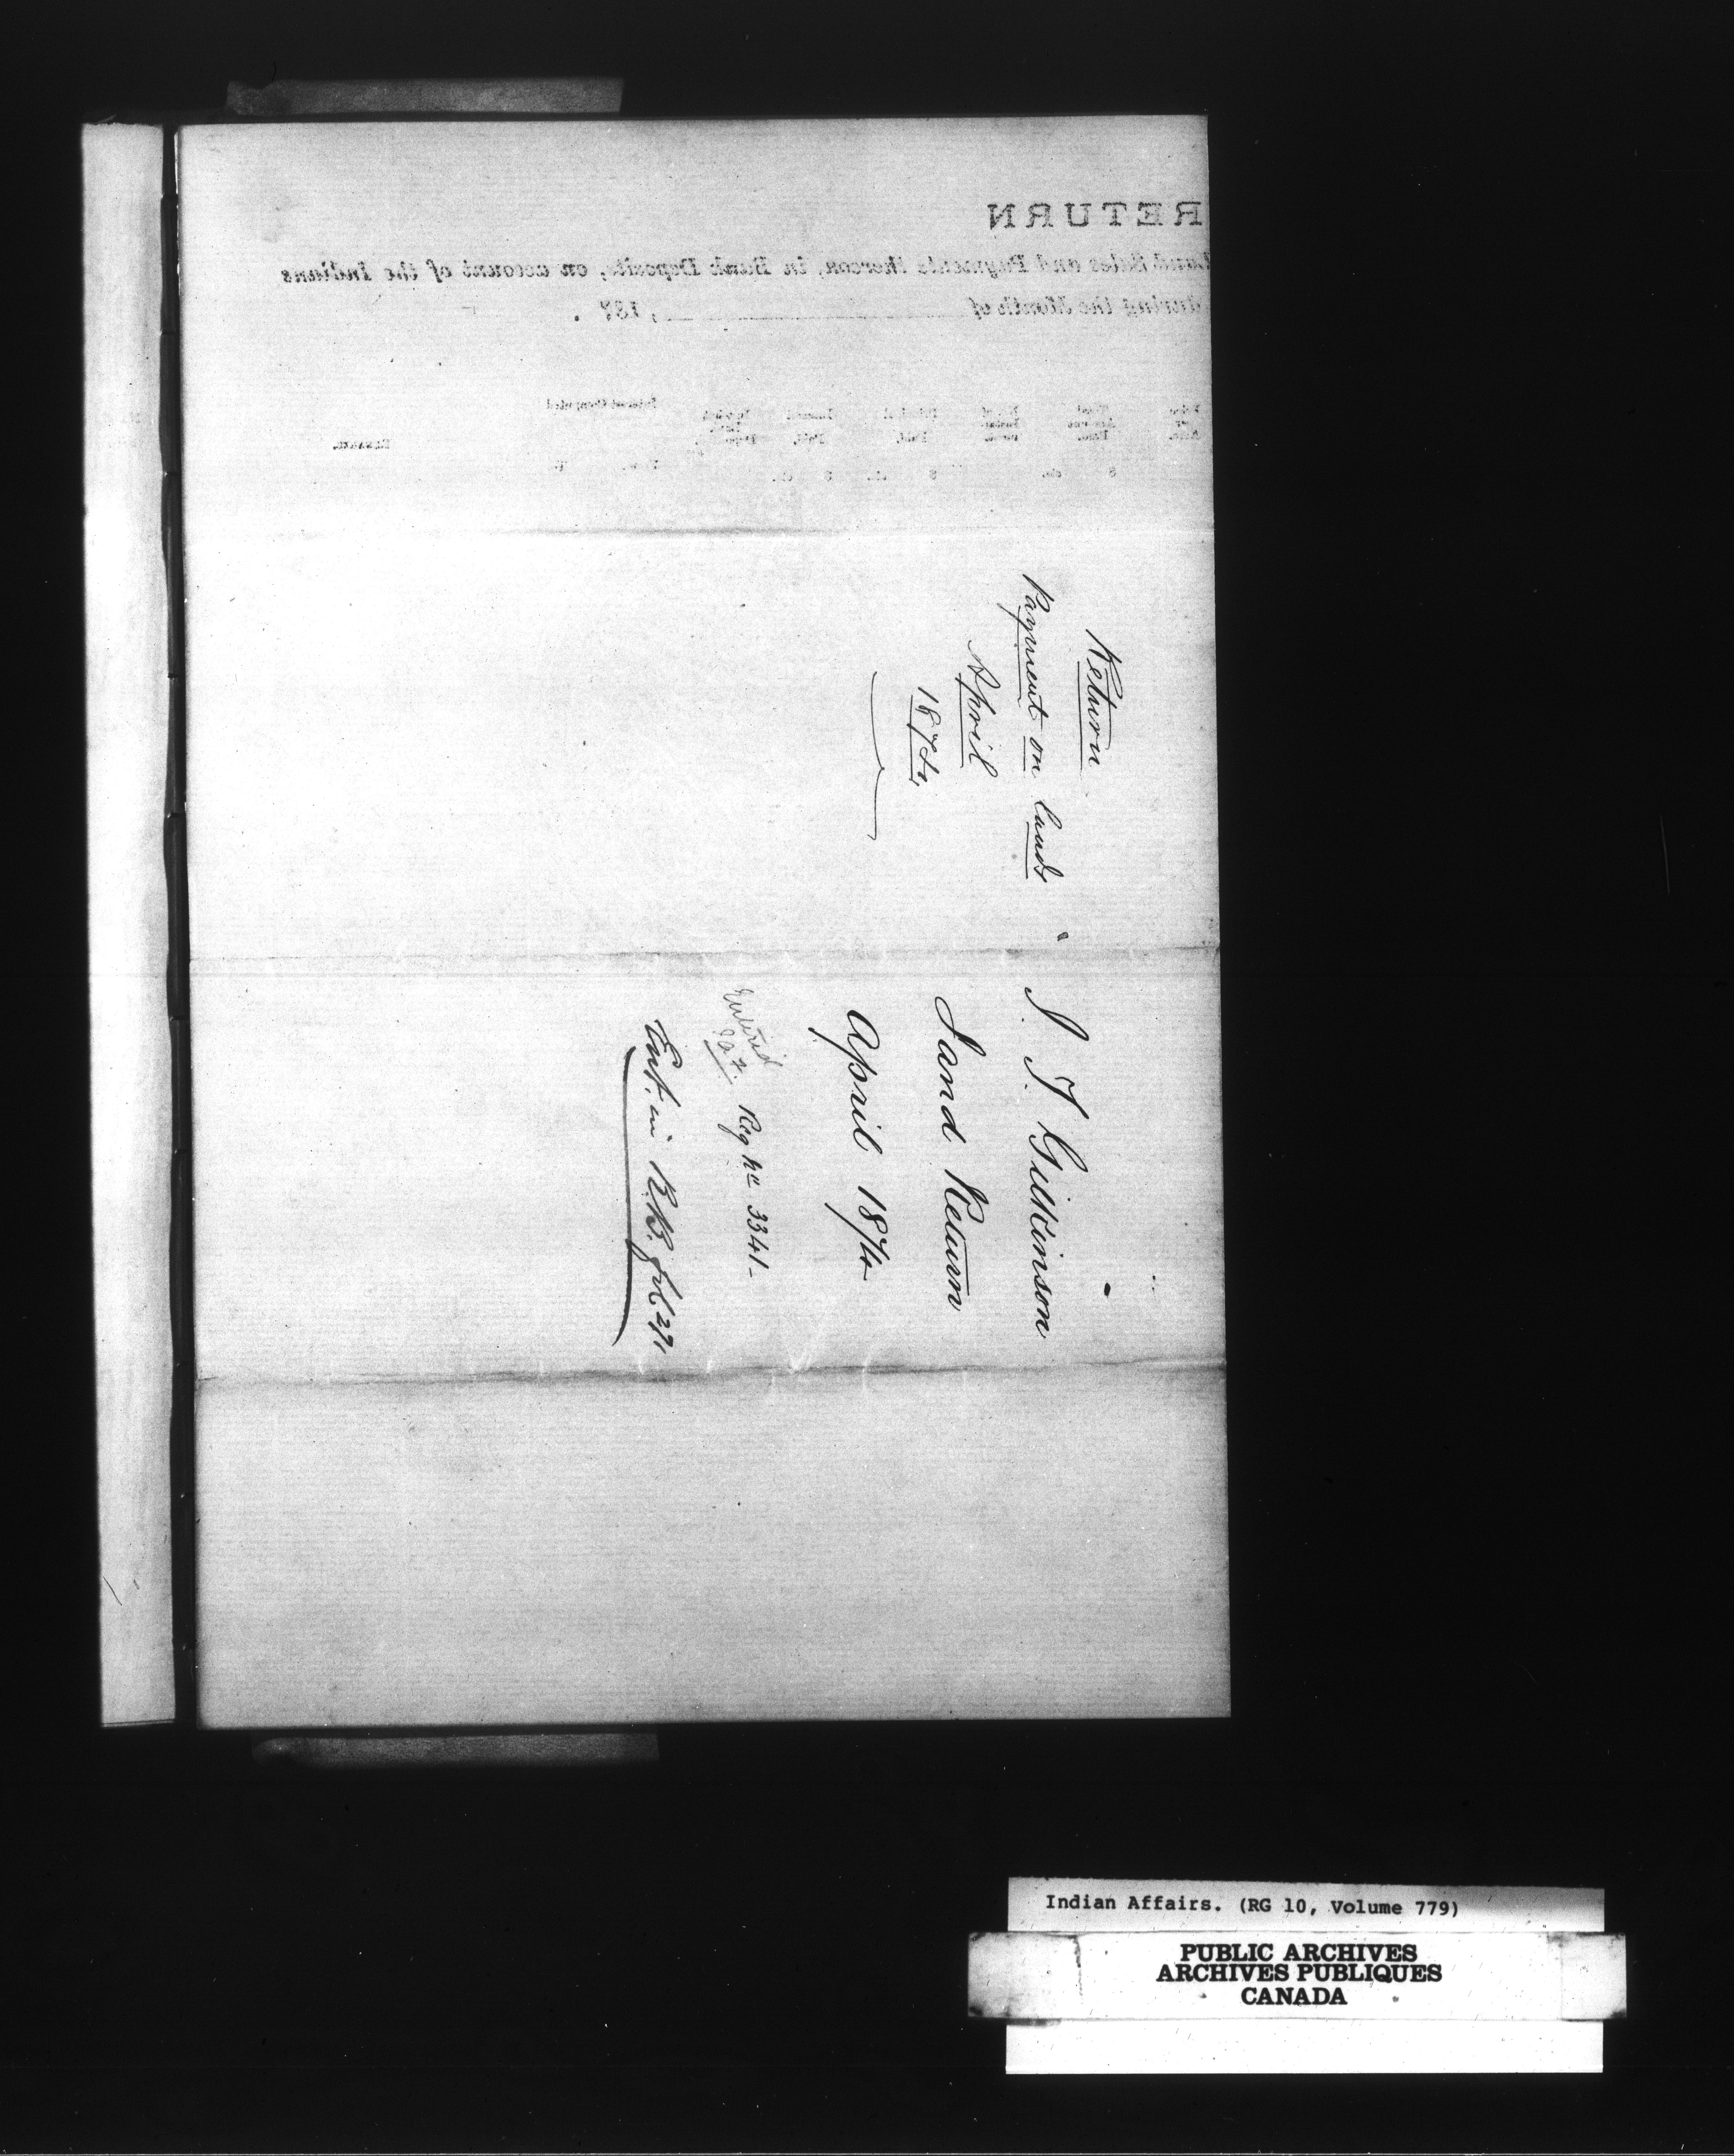 RETURN
Land Sales and Payments thereon, in Bank Deposits, on account of the Indians
during the Month of , 187 .
Interest Computed
REMARKS.
Return
Payment on lands
April
1874
J. T. Gilkinson
Land Return
April 1874
Entered
Reg No 3341-
Ent. in R.B. fol 291
Indian Affairs. (RG 10, Volume 779)
PUBLIC ARCHIVES
ARCHIVES PUBLIQUES
CANADA